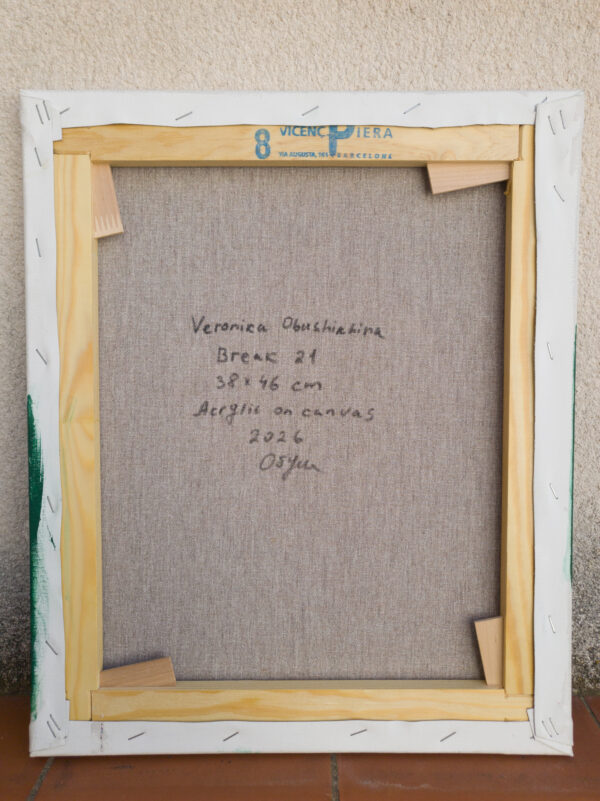 8 VICENÇ PIERA
VIA AUGUSTA, BARCELONA
Veronica Obushinkina
Break 21
38 x 46 cm
Acrylic on canvas
2026